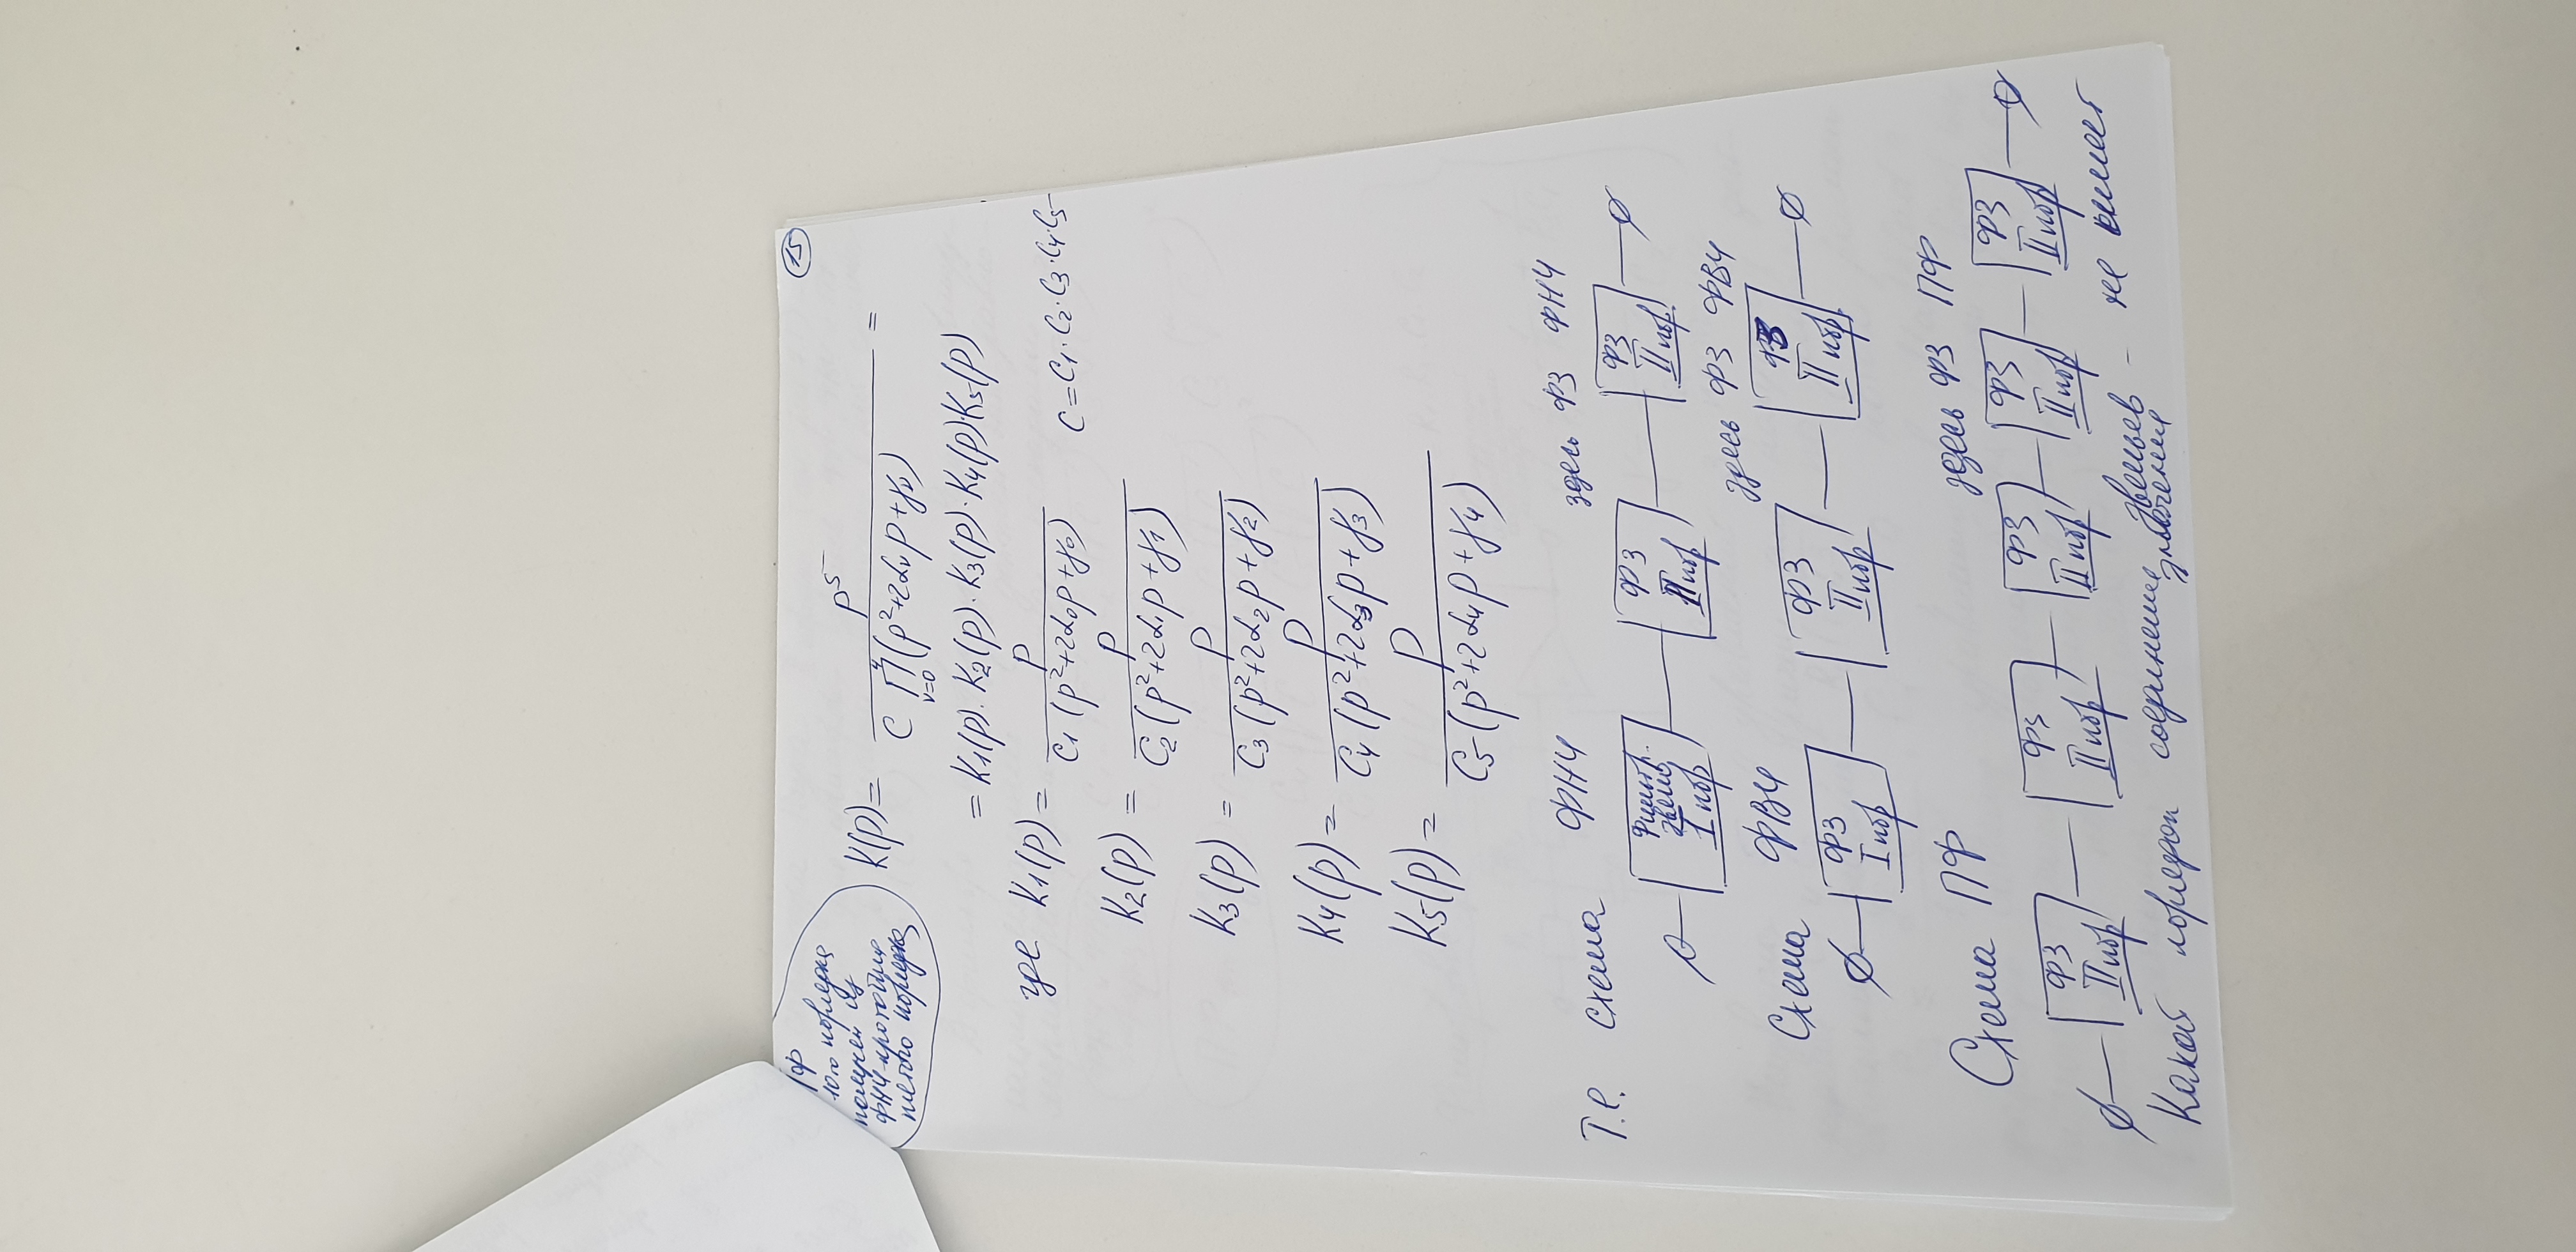 15
ПФ
10го порядка
получен из
ФНЧ-прототипа
пятого порядка
K(p) = p^5 / (C ∏_{ν=0}^{4} (p²+2α_ν p+γ_ν)) =
= K1(p)·K2(p)·K3(p)·K4(p)K5(p)
где K1(p) = p / (C1(p²+2α0p+γ0))
C=C1·C2·C3·C4·C5
K2(p) = p / (C2(p²+2α1p+γ1))
K3(p) = p / (C3(p²+2α2p+γ2))
K4(p) = p / (C4(p²+2α3p+γ3))
K5(p) = p / (C5(p²+2α4p+γ4))
Т.е. схема ФНЧ здесь ФЗ ФНЧ
Фильтр. звено I пор ФЗ II пор ФЗ II пор
Схема ФВЧ здесь ФЗ ФВЧ
ФЗ I пор ФЗ II пор ФЗ II пор
Схема ПФ здесь ФЗ ПФ
ФЗ II пор ФЗ II пор ФЗ II пор ФЗ II пор ФЗ II пор
Какой порядок соединения звеньев - не имеет
значения